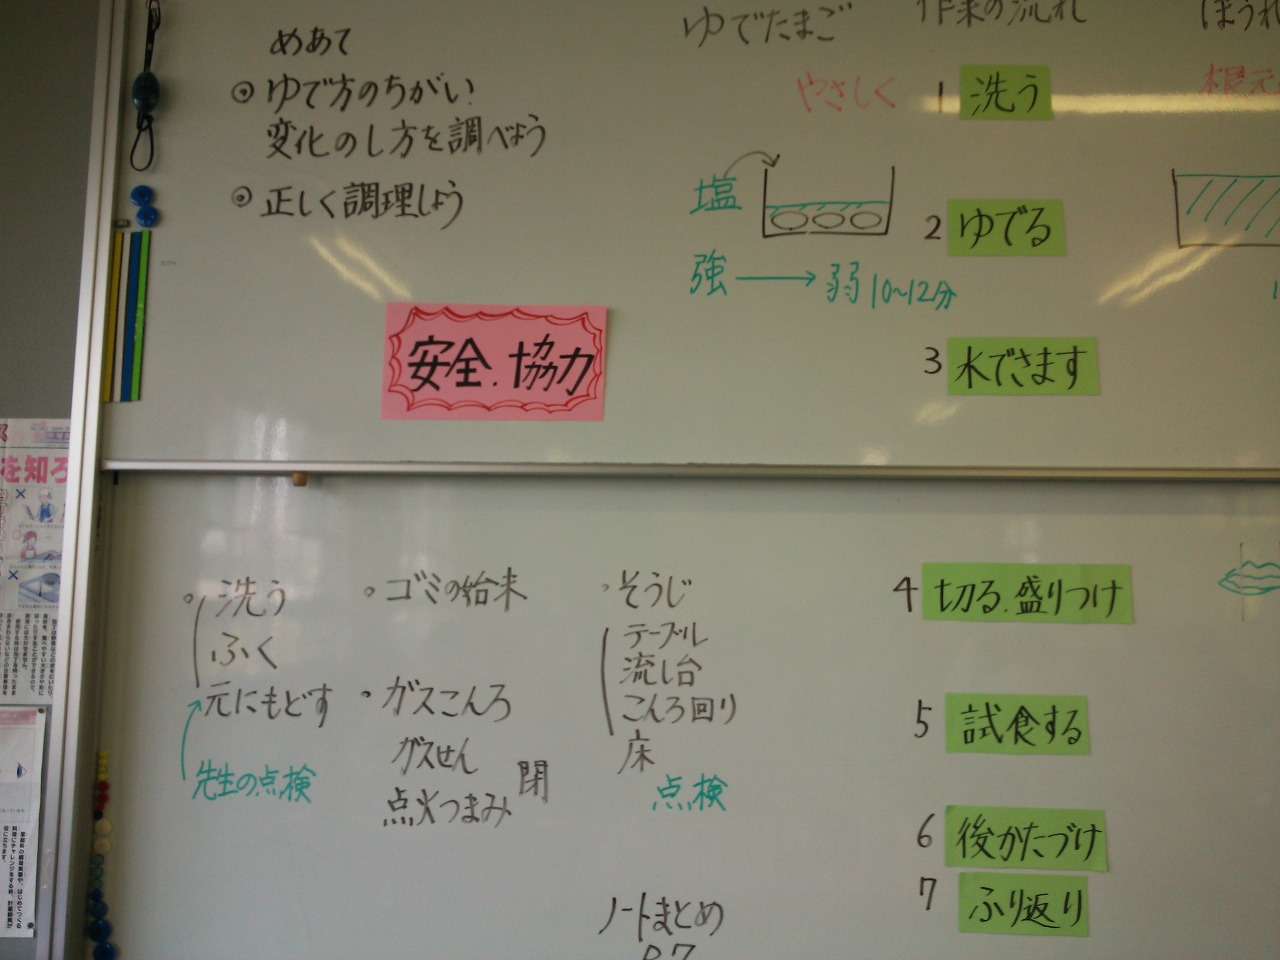 めあて
◎ゆで方のちがい
変化のし方を調べよう
◎正しく調理しよう
安全.協力
ゆでたまご
作業の流れ
ほうれ
やさしく
1 洗う
根元
塩
2 ゆでる
強→弱10~12分
3 水でさます
を知ろ
・洗う
ふく
元にもどす
先生の点検
・ゴミの始末
・ガスこんろ
ガスせん
点火つまみ
閉
・そうじ
テーブル
流し台
こんろ回り
床
点検
ノートまとめ
P7
4 切る.盛りつけ
5 試食する
6 後かたづけ
7 ふり返り